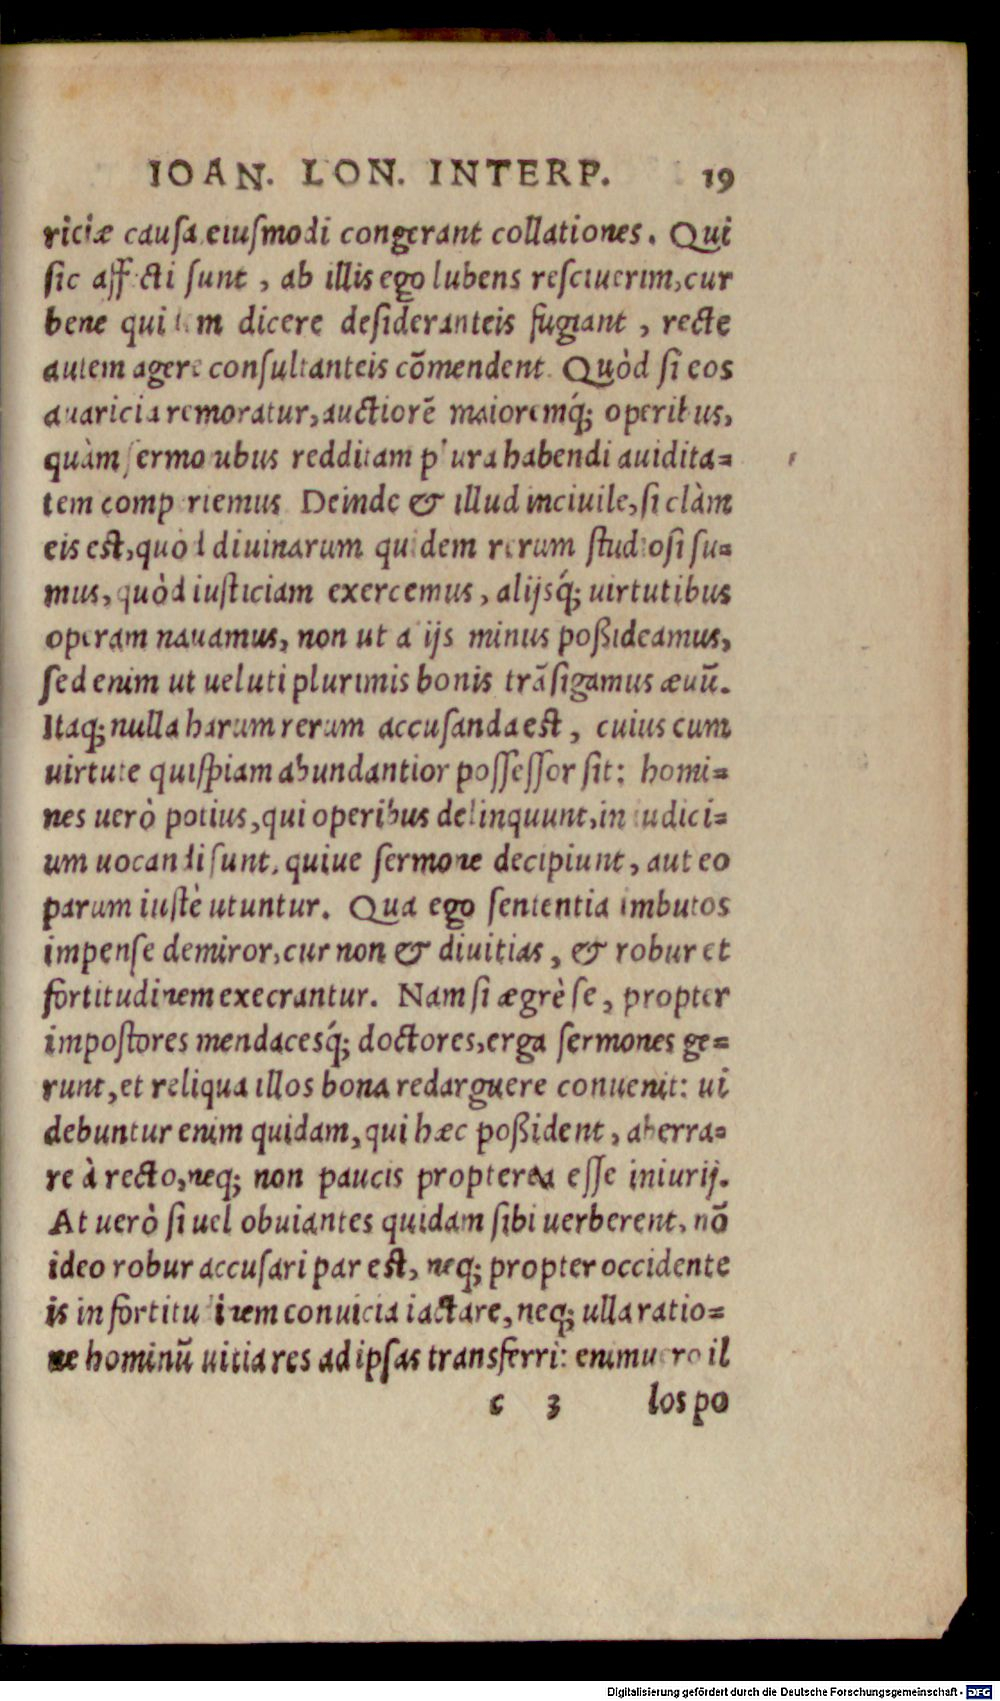 IOAN. LON. INTERP. 19
riciæ causa eiusmodi congerant collationes. Qui
sic affecti sunt, ab illis ego lubens resciuerim, cur
bene quidem dicere desideranteis fugiant, recte
autem agere consultanteis cōmendent. Quòd si eos
auaricia remoratur, auctiorē maioremq́; operibus,
quàm sermonibus redditam plura habendi auidita=
tem comperiemus. Deinde & illud inciuile, si clàm
eis est, quod diuinarum quidem rerum studiosi su=
mus, quòd iusticiam exercemus, alijsq́; uirtutibus
operam nauamus, non ut alijs minus poßideamus,
sed enim ut ueluti plurimis bonis trāsigamus æuū.
Itaq; nulla harum rerum accusanda est, cuius cum
uirtute quispiam abundantior possessor sit: homi=
nes uerò potius, qui operibus delinquunt, in iudici=
um uocandi sunt, quiue sermone decipiunt, aut eo
parum iustè utuntur. Qua ego sententia imbutos
impense demiror, cur non & diuitias, & robur et
fortitudinem execrantur. Nam si ægrè se, propter
impostores mendacesq́; doctores, erga sermones ge=
runt, et reliqua illos bona redarguere conuenit: ui
debuntur enim quidam, qui hæc poßident, aberra=
re à recto, neq; non paucis propterea esse iniurij.
At uerò si uel obuiantes quidam sibi uerberent, nō
ideo robur accusari par est, neq; propter occidente
is in fortitudinem conuicia iactare, neq; ulla ratio=
ne hominū uitia res ad ipsas transferri: enimuero il
c 3 los po
Digitalisierung gefördert durch die Deutsche Forschungsgemeinschaft - DFG